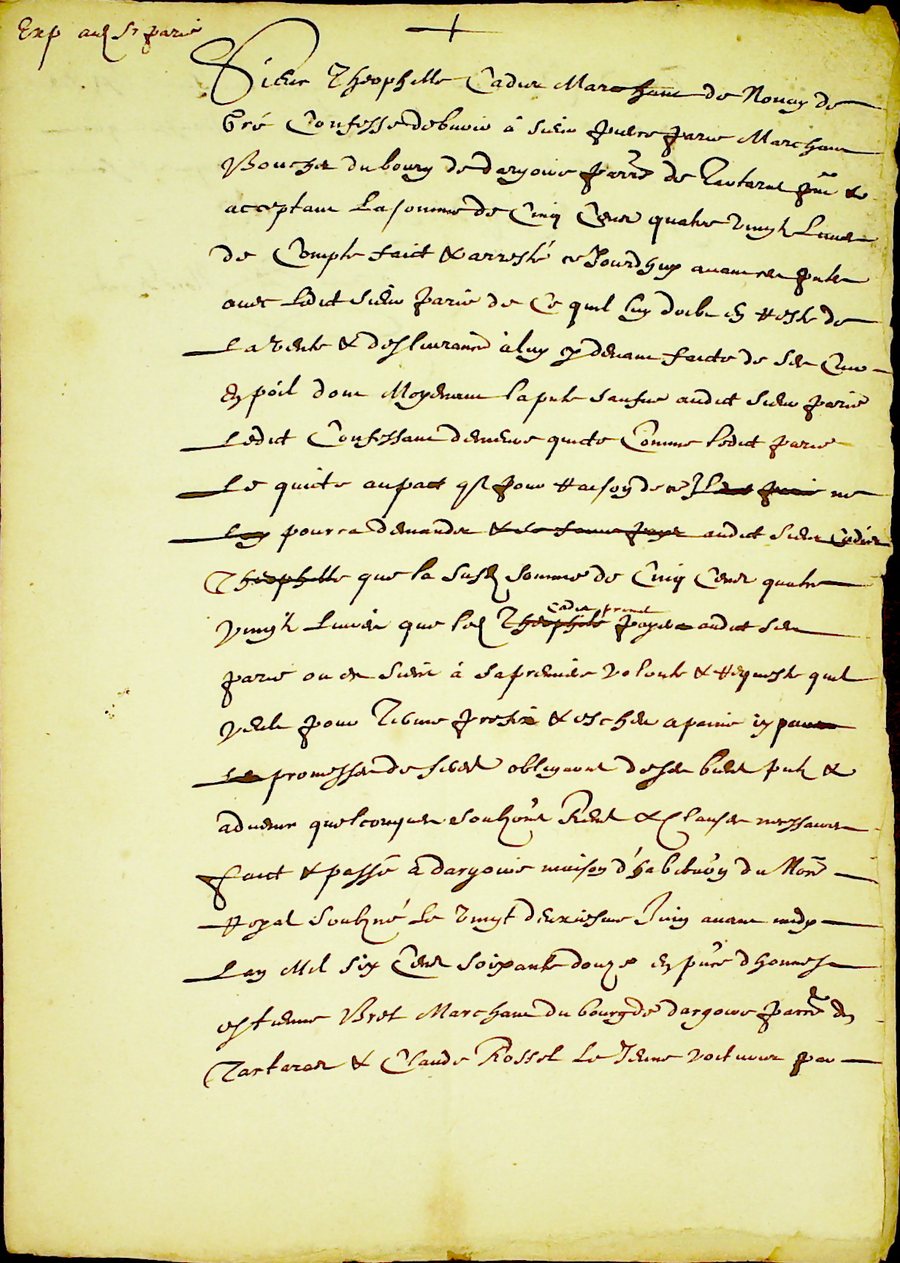 Exp aud Sr parie
Sieur Theophille Cadier Marchant de Nouay de
Gré Confesse debvoir à sieur pierre parie Marchant
Boucher du bourg de dargoire parre de Tartaras pnt &
acceptant La somme de Cinq Cens quatre vingt Livres
de Compte faict & arresté ce Jourdhuy avant ces pntes
avec Ledit sieur parie de Ce quil luy doibt en Reste de
La vente & deslivrance à luy cy devant faicte de ses Cuirs
en poil dont Moyenant la pnte sauf audit sieur parie
Ledit Confessant demeure quicte Comme ledit parie
Le quicte au pact que pour Raison de ce Il ne
Luy pourra demander audit sieur Cadier
Theophille que la susd somme de Cinq Cens quatre
vingt Livres que led Theophile Cadier promet payer audit sieur
parie ou es siens à sa premiere volonté & Requeste quil
veult pour Terme prefix & escheu a peine
promesses de serment obligaons de ses biens pnts &
advenir quelconques soubzons Rens & Clauses necessaires
faict & passé a dargoire maison d'habitaon du Nore
Royal soubzné Le vingt deuxiesme Juin avant midy
L an Mil six Cens soixante douze en pnce dhonneste
estienne Bret Marchant du bourg de dargoire parre de
Tartaras & Claude Rossel Le Jeune voiturier par